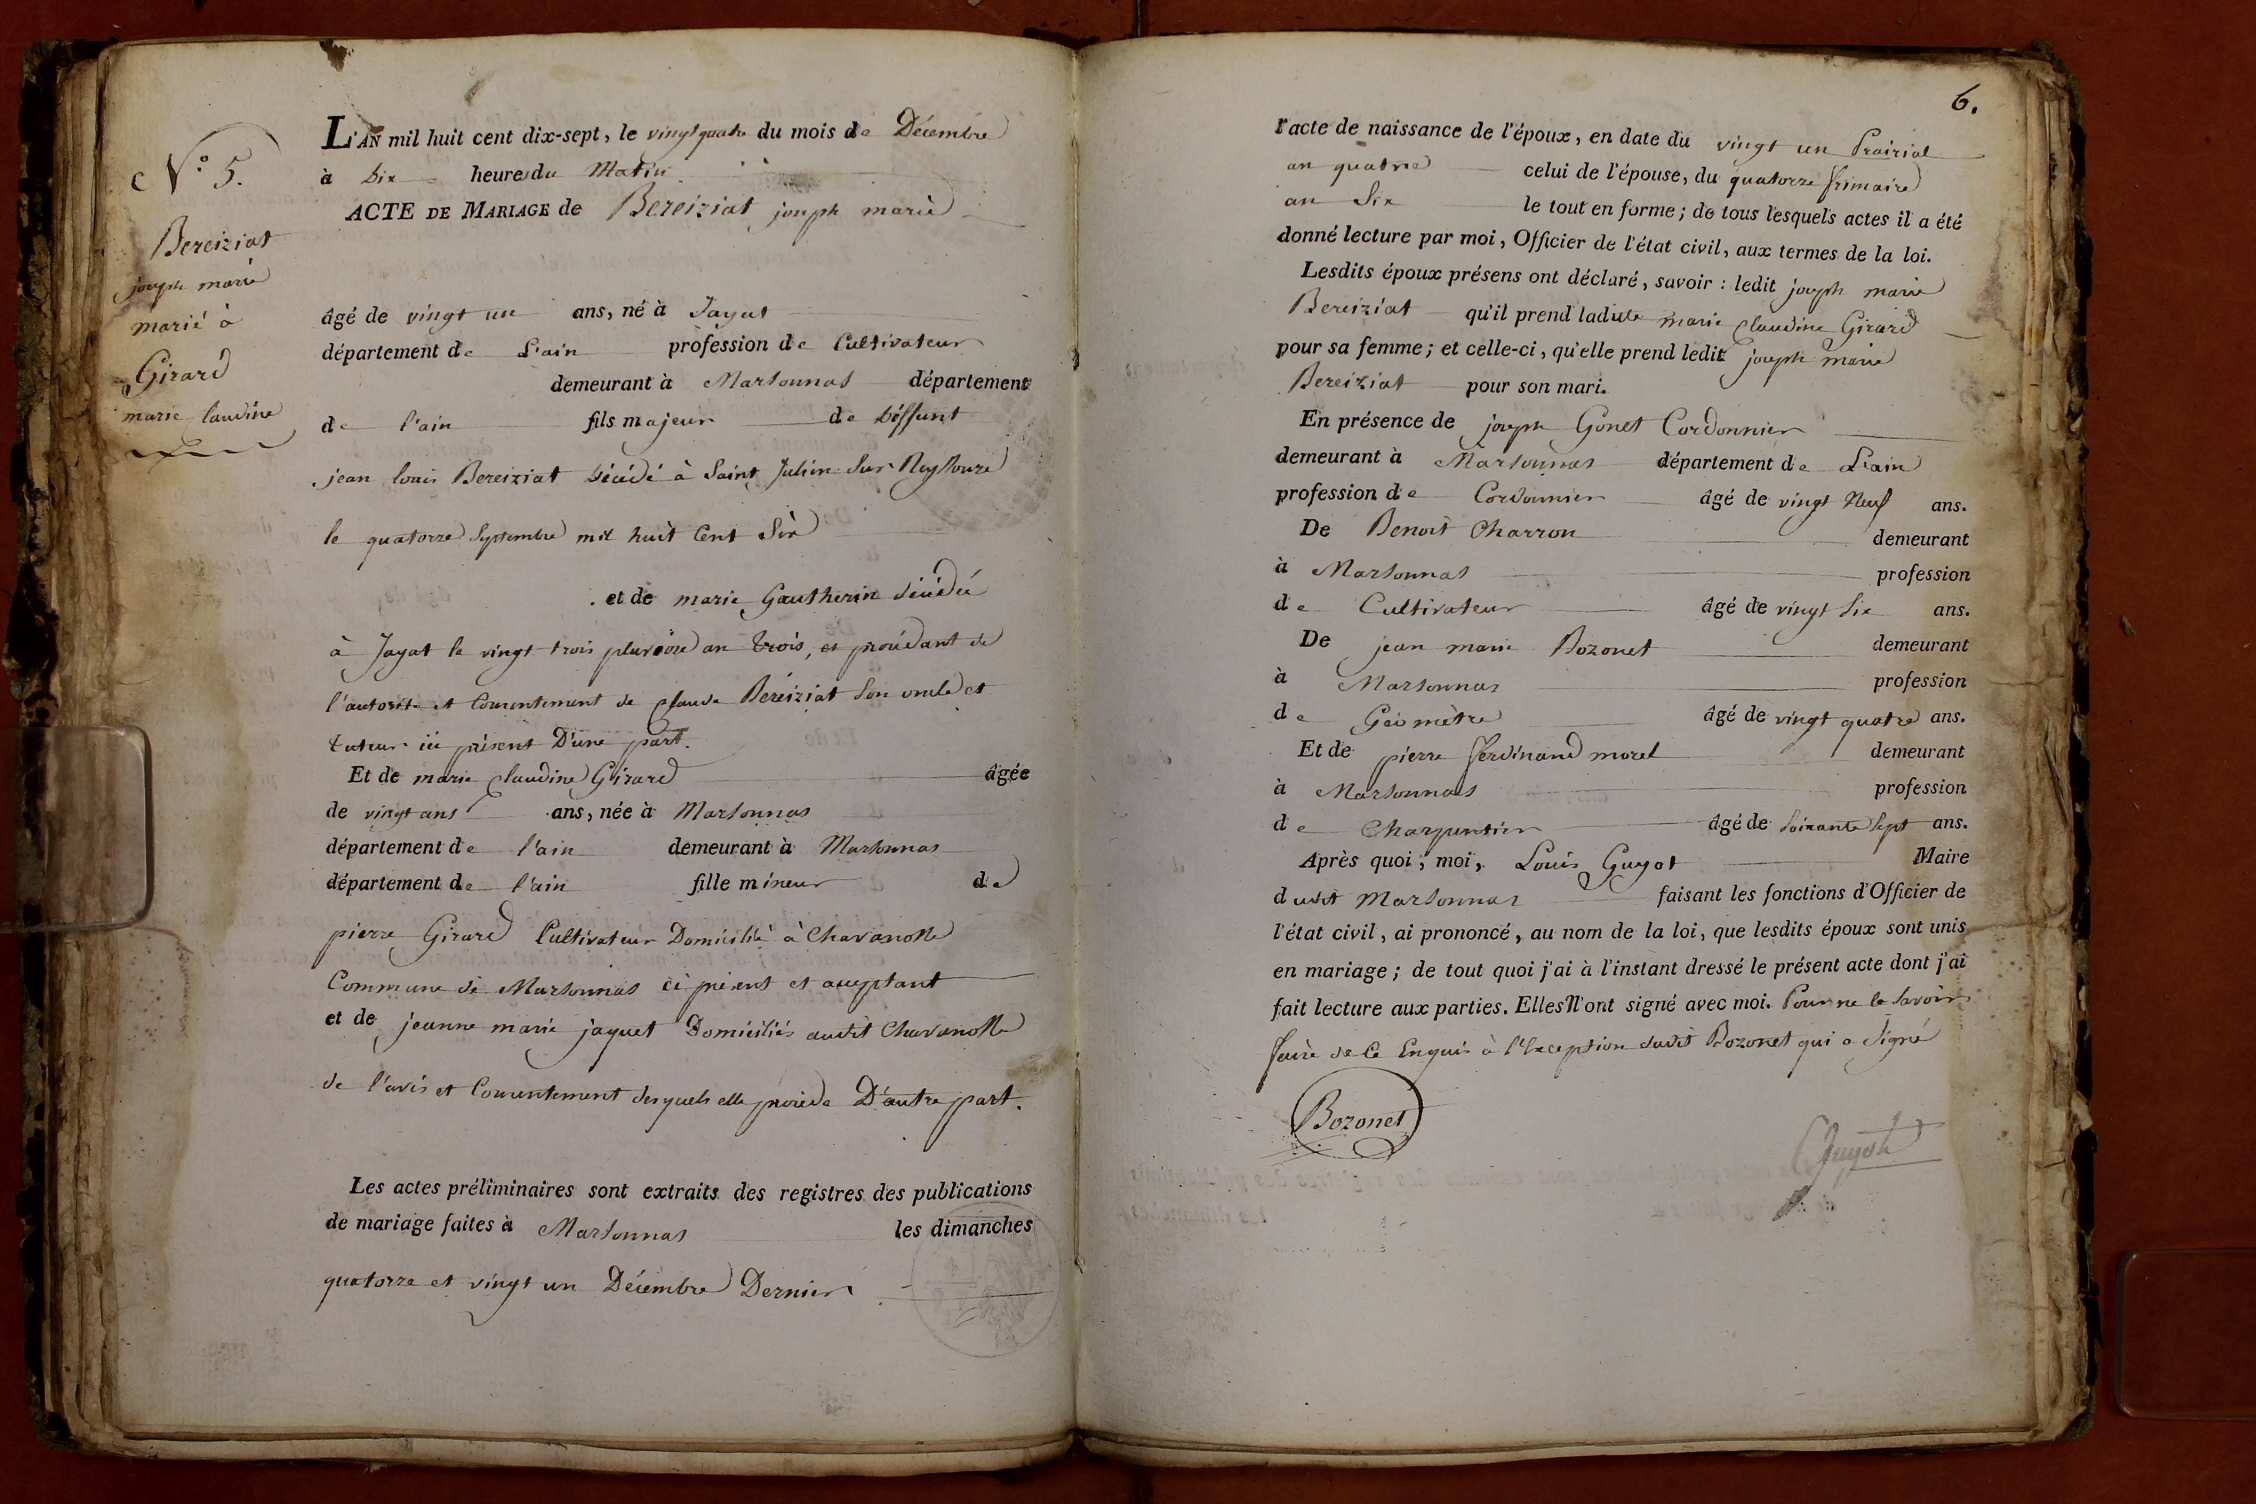 N.° 5.
Bereiziat
joseph marie
marié à
Girard
marie laudine
L'AN mil huit cent dix-sept, le vingt quatre du mois de Décembre
à dix heures du Matin
ACTE DE MARIAGE de Bereiziat joseph marie
âgé de vingt un ans, né à Jayat
département de L'ain profession de Cultivateur
demeurant à Marsonnas département
de l'ain fils majeur de déffunt
jean louis Bereiziat décédé à Saint Julien Sur Reyssouze
le quatorze Septembre mil huit Cent Six
et de marie Gautherin décédée
à Jayat le vingt trois pluviose an trois, et procédant de
l'autorité et Consentement de Claude Béréiziat Son oncle et
tuteur ici présent D'une part.
Et de marie Claudine Girard âgée
de vingt ans ans, née à Marsonnas
département de l'ain demeurant à Marsonnas
département de l'ain fille mineur de
pierre Girard Cultivateur Domicilié à Chavanosse
Commune de Marsonnas ci présent et acceptant
et de jeanne marie jaquet Domiciliés audit Chavanosse
de l'avis et Consentement desquels elle procède D'autre part.
Les actes préliminaires sont extraits des registres des publications
de mariage faites à Marsonnas les dimanches
quatorze et vingt un Décembre Dernier
6.
l'acte de naissance de l'époux, en date du vingt un Prairial
an quatre celui de l'épouse, du quatorze frimaire
an Six le tout en forme; de tous lesquels actes il a été
donné lecture par moi, Officier de l'état civil, aux termes de la loi.
Lesdits époux présens ont déclaré, savoir : ledit joseph marie
Bereiziat qu'il prend ladite marie Claudine Girard
pour sa femme; et celle-ci, qu'elle prend ledit joseph marie
Bereiziat pour son mari.
En présence de joseph Gonet Cordonnier
demeurant à Marsonnas département de L'ain
profession de Cordonnier âgé de vingt Neuf ans.
De Benoit Charron demeurant
à Marsonnas profession
de Cultivateur âgé de vingt Six ans.
De jean marie Bozonet demeurant
à Marsonnas profession
de Géomètre âgé de vingt quatre ans.
Et de pierre ferdinand morel demeurant
à Marsonnas profession
de Charpentier âgé de Soixante Sept ans.
Après quoi, moi, Louis Guyot Maire
dudit Marsonnas faisant les fonctions d'Officier de
l'état civil, ai prononcé, au nom de la loi, que lesdits époux sont unis
en mariage; de tout quoi j'ai à l'instant dressé le présent acte dont j'ai
fait lecture aux parties. Elles N'ont signé avec moi. Pour ne le Savoir
faire de Ce Enquis à l'Exception dudit Bozonet qui a Signé
Bozonet
Guyot